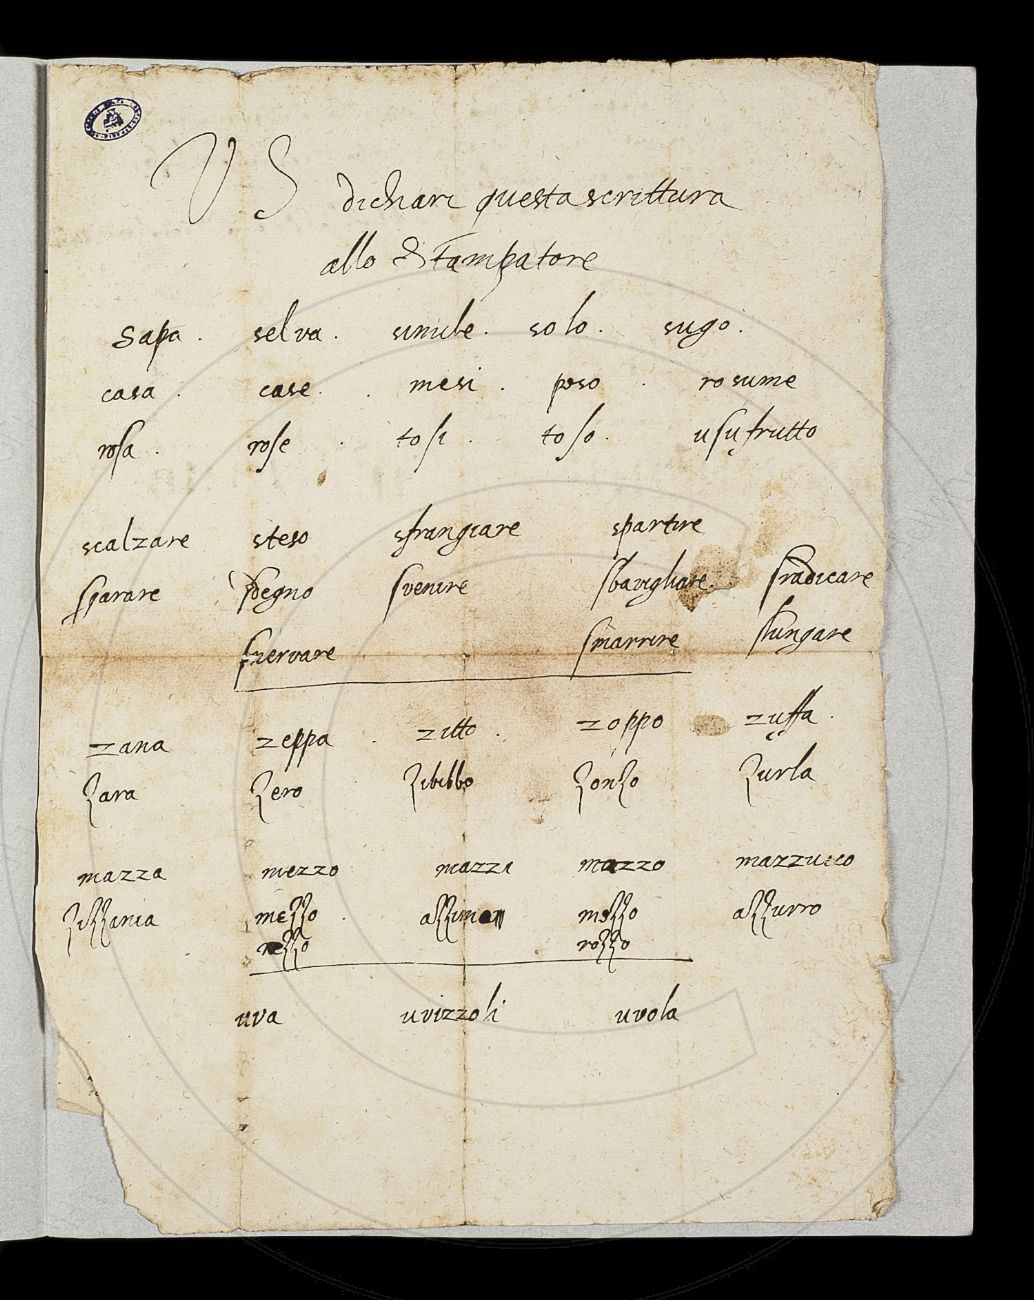 V S dichiari questa scrittura
allo Stampatore
sapa . selva . simile . solo . sugo .
casa . case . mesi . peso . rosume
roſa . roſe . toſi . toſo . uſufrutto
scalzare steso sfrangiare spartire
ſgarare ſdegno ſvenire ſbavigliare ſradicare
ſnervare ſmarrire ſlungare
zana zeppa . zitto . zoppo zuffa .
ʒara ʒero ʒibibbo ʒonʒo ʒurla
mazza mezzo mazzi mazzo mazzucco
ʒiʒʒania meʒʒo . meʒʒo aʒʒurro
reʒʒo roʒʒo
uva uvizzoli uvola